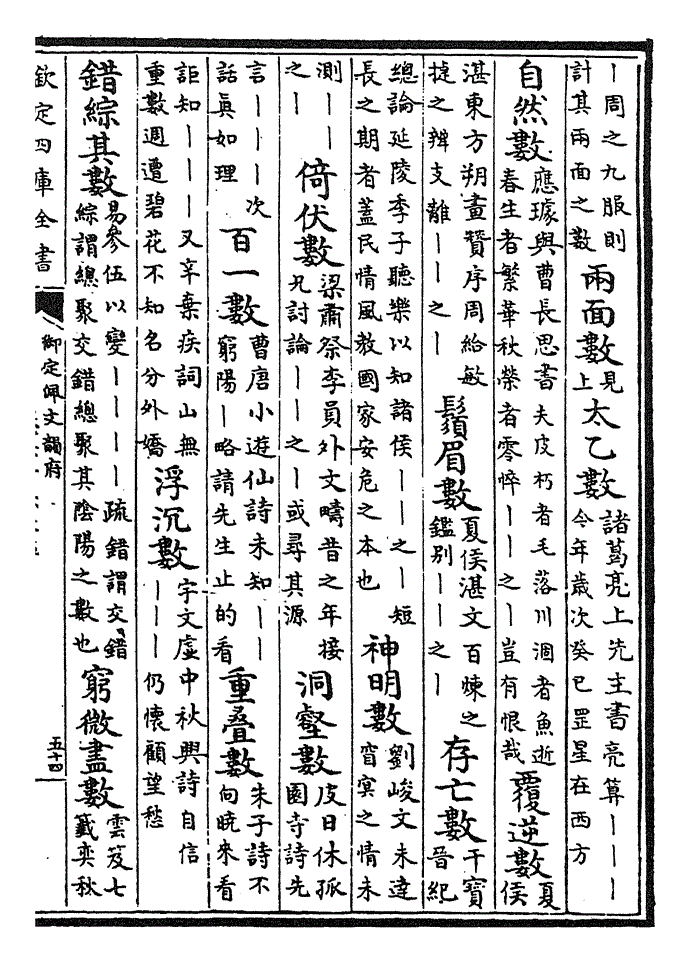 ｜周之九服則
計其兩面之數
兩面數
見
上
太乙數
諸葛亮上先主書亮算｜｜｜
今年歲次癸巳罡星在西方
自然數
應璩與曹長思書夫皮朽者毛落川涸者魚逝
春生者繁華秋榮者零悴｜｜之｜豈有恨哉
覆逆數
夏
侯
湛東方朔畫贊序周給敏
捷之辨支離｜｜之｜
鬚眉數
夏侯湛文百煉之
鑑别｜｜之｜
存亡數
干寶
晉紀
總論延陵季子聽樂以知諸侯｜｜之｜短
長之期者蓋民情風教國家安危之本也
神明數
劉峻文未達
窅冥之情未
測｜｜
之｜
倚伏數
梁肅祭李員外文疇昔之年接
凡討論｜｜之｜或尋其源
洞壑數
皮日休孤
園寺詩先
言｜｜｜次
話眞如理
百一數
曹唐小遊仙詩未知｜｜
窮陽｜略請先生止的看
重疊數
朱子詩不
向曉來看
詎知｜｜｜又辛棄疾詞山無
重數週遭碧花不知名分外嬌
浮沉數
宇文虚中秋興詩自信
｜｜｜仍懷顧望愁
錯綜其數
易參伍以變｜｜｜｜疏錯謂交錯
綜謂總聚交錯總聚其陰陽之數也
窮微盡數
雲笈七
籤奕秋
欽定四庫全書
御定佩文韻府
五十四